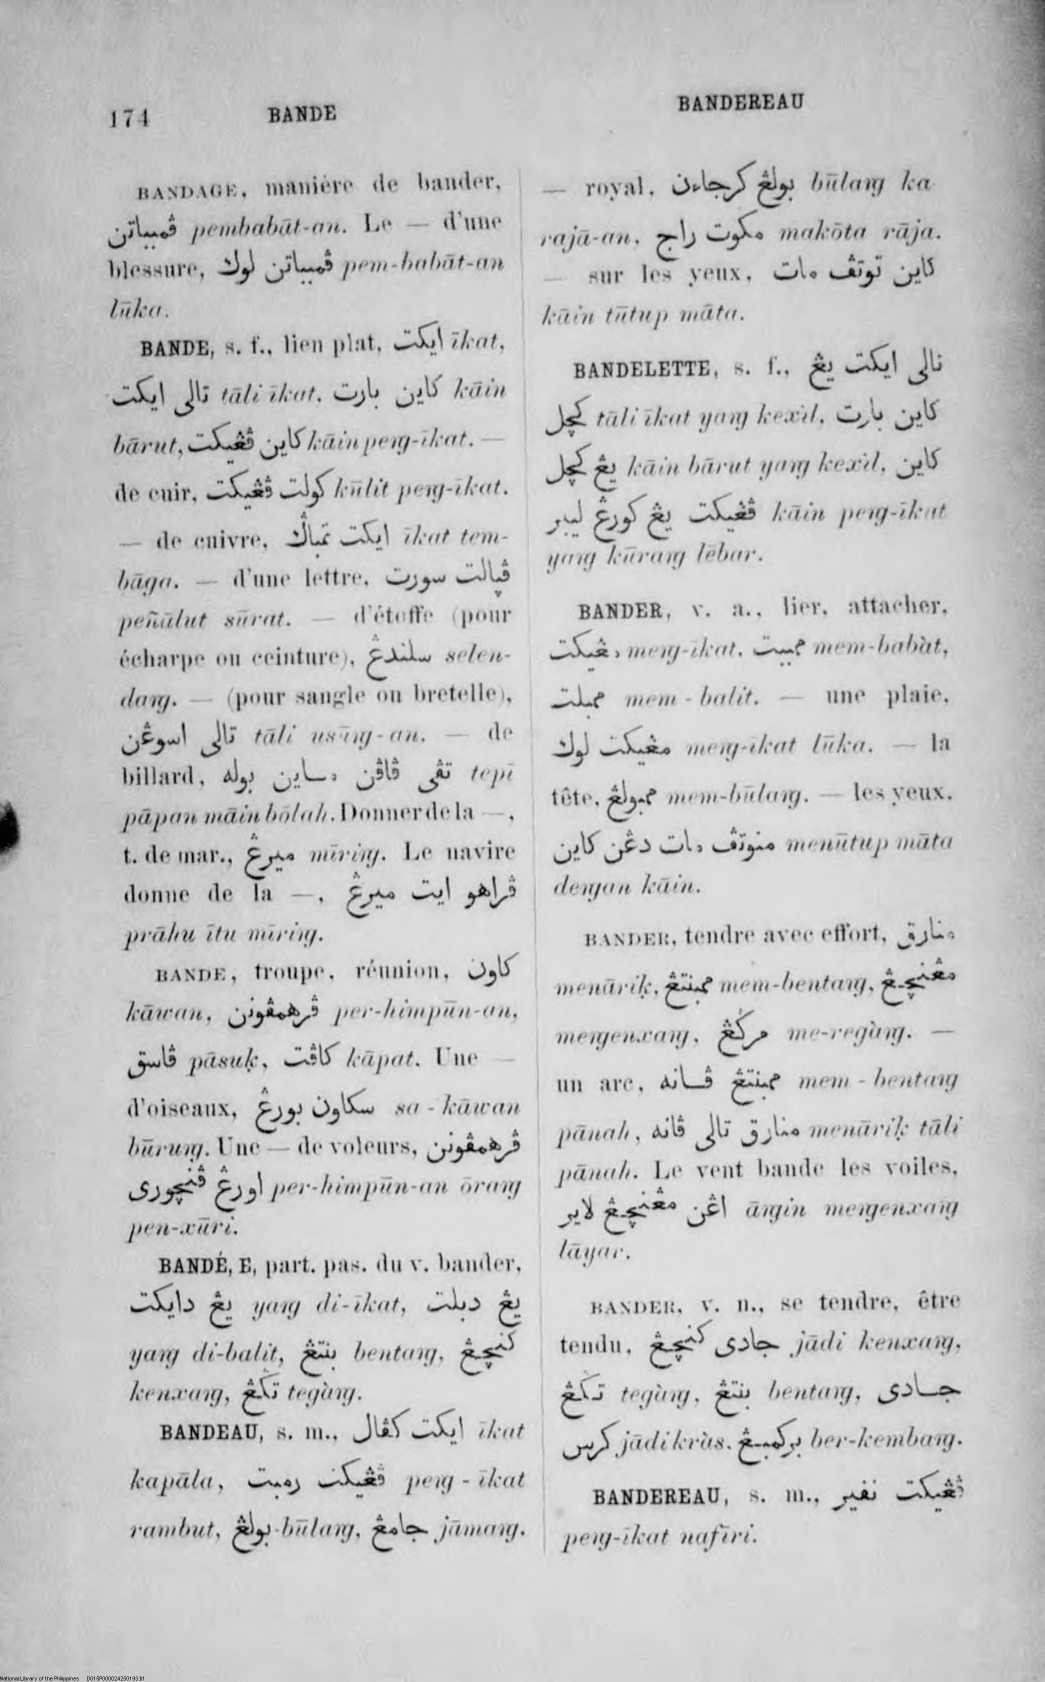 174 BANDE BANDEREAU
BANDAGE, manière de bander,
ڤمبباتن pembabāt-an. Le — d'une
blessure, ڤمبباتن لوك pem-babāt-an
lūka.
BANDE, s. f., lien plat, ايكت īkat,
تالی ايكت tāli īkat, كاين بارت kāin
bārut, كاين ڤڠيكت kāin peng-īkat. —
de cuir, كولت ڤڠيكت kūlit peng-īkat.
— de cuivre, ايكت تمباڬ īkat tem-
bāga. — d'une lettre, ڤڽالت سورت
peñālut sūrat. — d'étoffe (pour
écharpe ou ceinture), سلندڠ selen-
dang. — (pour sangle ou bretelle),
تالی اسوڠن tāli usūng-an. — de
billard, تڤی ڤاڤن ماين بوله tepī
pāpan māin bōlah. Donner de la —,
t. de mar., ميرڠ mīring. Le navire
donne de la —, ڤراهو ايت ميرڠ
prāhu ītu mīring.
BANDE, troupe, réunion, كاون
kāwan, ڤرهمڤونن per-himpūn-an,
ڤاسق pāsuḳ, كاڤت kāpat. Une —
d'oiseaux, سكاون بورڠ sa-kāwan
būrung. Une — de voleurs, ڤرهمڤونن
اورڠ ڤنچوری per-himpūn-an ōrang
pen-xūri.
BANDÉ, E, part. pas. du v. bander,
يڠ دايكت yang di-īkat, يڠ دبلت
yang di-balit, بنتڠ bentang, كنچڠ
kenxang, تڬڠ tegàng.
BANDEAU, s. m., ايكت كڤال īkat
kapāla, ڤڠيكت رمبت peng-īkat
rambut, بولڠ būlang, جامڠ jāmang.
— royal, بولڠ كرجاءن būlang ka-
rajā-an, مكوت راج makōta rāja.
— sur les yeux, كاين توتڤ مات
kāin tūtup māta.
BANDELETTE, s. f., تالی ايكت يڠ
كچل tāli īkat yang kexil, كاين بارت
يڠ كچل kāin bārut yang kexil, كاين
ڤڠيكت يڠ كورڠ ليبر kāin peng-īkat
yang kūrang lēbar.
BANDER, v. a., lier, attacher,
مڠيكت meng-īkat, ممببت mem-babàt,
ممبلت mem-balit. — une plaie,
مڠيكت لوك meng-īkat lūka. — la
tête, ممبولڠ mem-būlang. — les yeux,
منوتڤ مات دڠن كاين menūtup māta
dengan kāin.
BANDER, tendre avec effort, منارق
menāriḳ, ممبنتڠ mem-bentang, مڠنچڠ
mengenxang, مرڬڠ me-regàng. —
un arc, ممبنتڠ ڤانه mem-bentang
pānah, منارق تالی ڤانه menāriḳ tāli
pānah. Le vent bande les voiles,
اڠن مڠنچڠ لاير āngin mengenxang
lāyar.
BANDER, v. n., se tendre, être
tendu, جادی كنچڠ jādi kenxang,
تڬڠ tegàng, بنتڠ bentang, جادی
كرس jādi kràs, بركمبڠ ber-kembang.
BANDEREAU, s. m., ڤڠيكت نفير
peng-īkat nafīri.
National Library of the Philippines